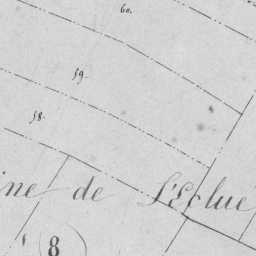 60.
59.
58.
ine de l'Ecluse
8